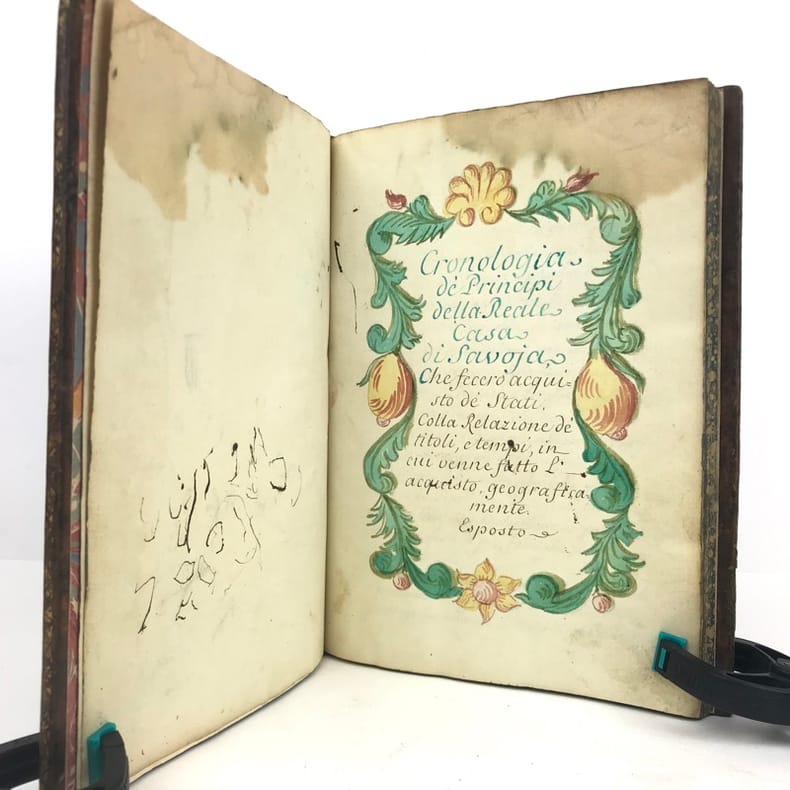 Cronologia
dè Principi
della Reale
Casa
di Savoja,
Che fecero acqui=
sto dè Stati.
Colla Relazione dè
titoli, e tempi, in
cui venne fatto l'
acquisto, geografica=
mente.
Esposto